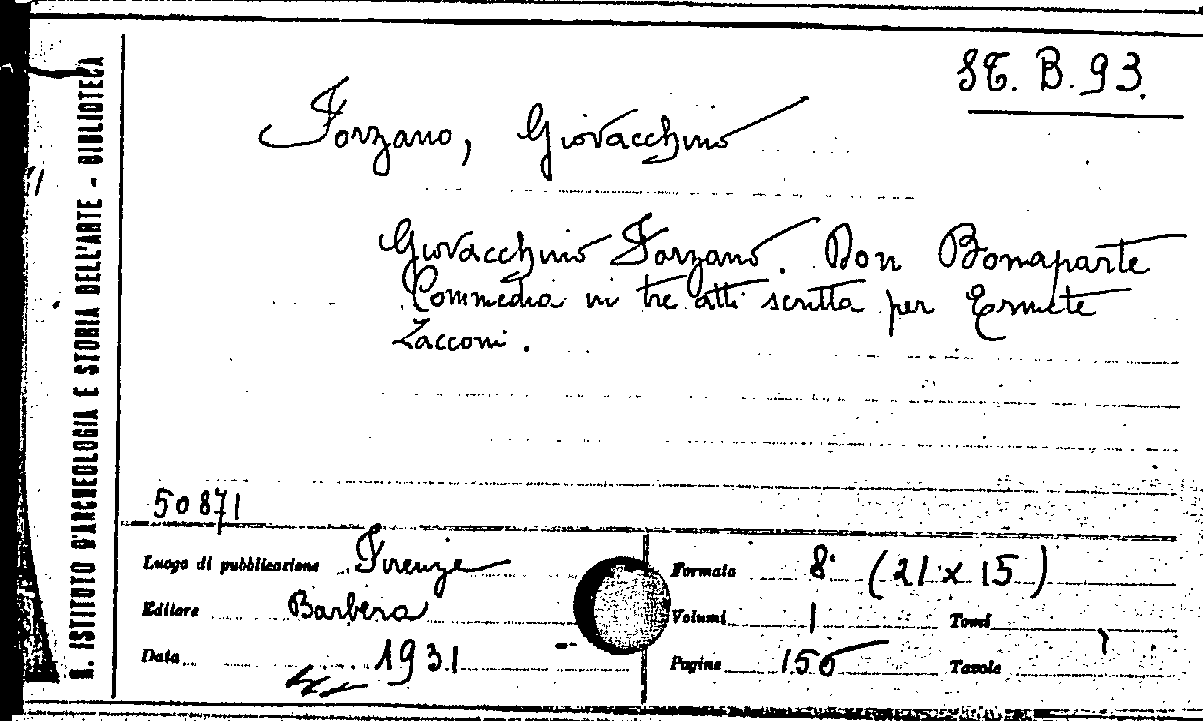 ST. B. 93.
Forzano, Giovacchino
Giovacchino Forzano. Don Bonaparte
Commedia in tre atti scritta per Ermete
Zacconi.
50871
Luogo di pubblicazione Firenze
Editore Barbera
Data 1931
Formato 8° (21 x 15)
Volumi 1 Tomi
Pagine Tavole
R. ISTITUTO D'ARCHEOLOGIA E STORIA DELL'ARTE - BIBLIOTECA